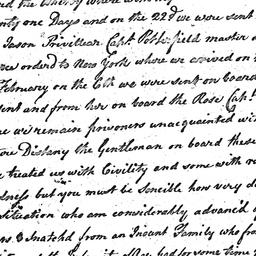 nty one Days and on the 22d we were sent
Jason Privilleer Capt. Potterfield master
were orderd to New York where we arrived on
February on the 6th we were sent on board
sent and from her on board the Rose Capt
we remain prisoners unacquainted wi
Distany the Gentleman on board these
treated us with Civility and some with
but you must be Sencible how very
Situation who am considerably advanc'd
Snatchd from an Infant Family who
had for some time